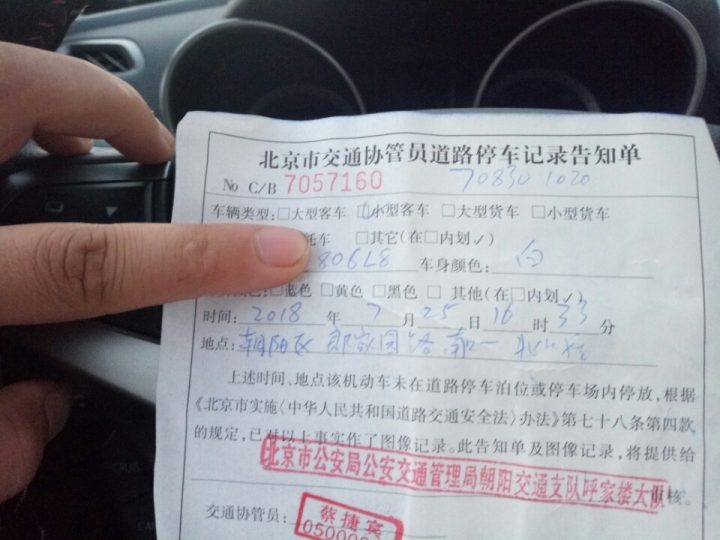 北京市交通协管员道路停车记录告知单
No C/B 7057160 708301020
车辆类型:□大型客车 □小型客车 □大型货车 □小型货车
托车 □其它(在□内划✓)
806L8 车身颜色: 白
颜色:□蓝色 □黄色 □黑色 □ 其他(在□内划✓)
时间: 2018 年 7 月 25 日 16 时 33 分
地点: 朝阳区 郎家园路
上述时间、地点该机动车未在道路停车泊位或停车场内停放,根据
《北京市实施〈中华人民共和国道路交通安全法〉办法》第七十八条第四款
的规定,已对以上事实作了图像记录。此告知单及图像记录,将提供给
北京市公安局公安交通管理局朝阳交通支队呼家楼大队 审核。
交通协管员: 蔡捷宾
050000